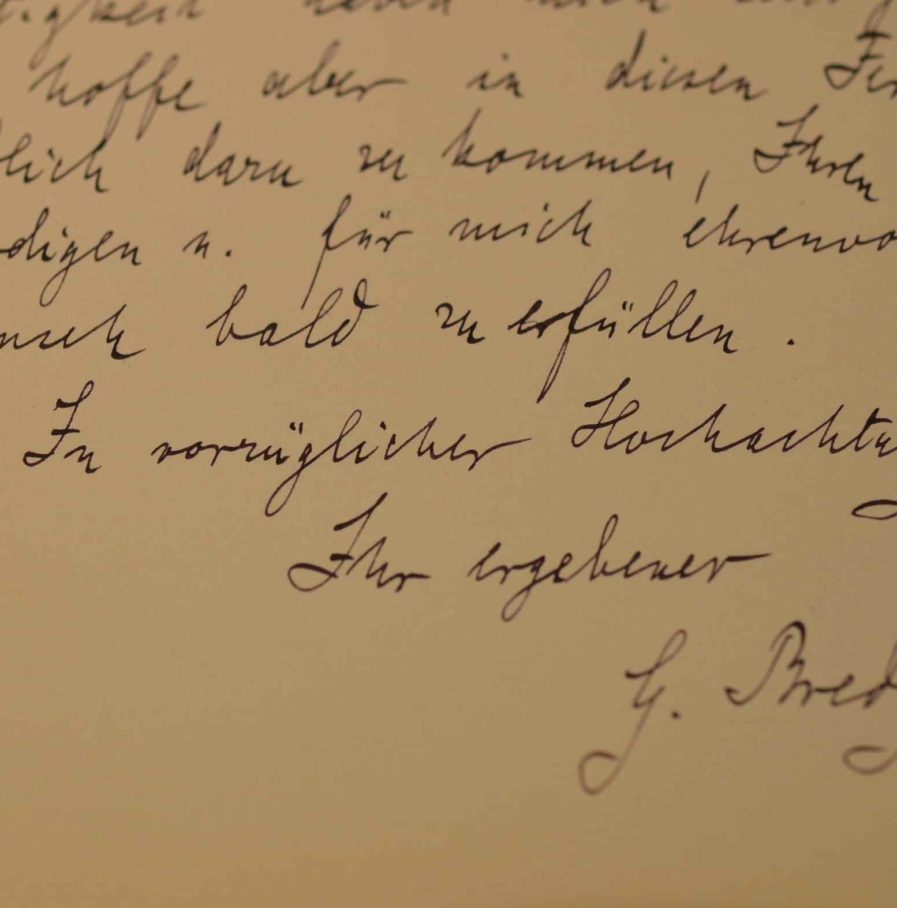 hoffe aber in diesen Fer
lich dazu zu kommen, Ihren
digen u. für mich ehrenvo
nsch bald zu erfüllen.
In vorzüglicher Hochachtu
Ihr ergebener
G. Bred